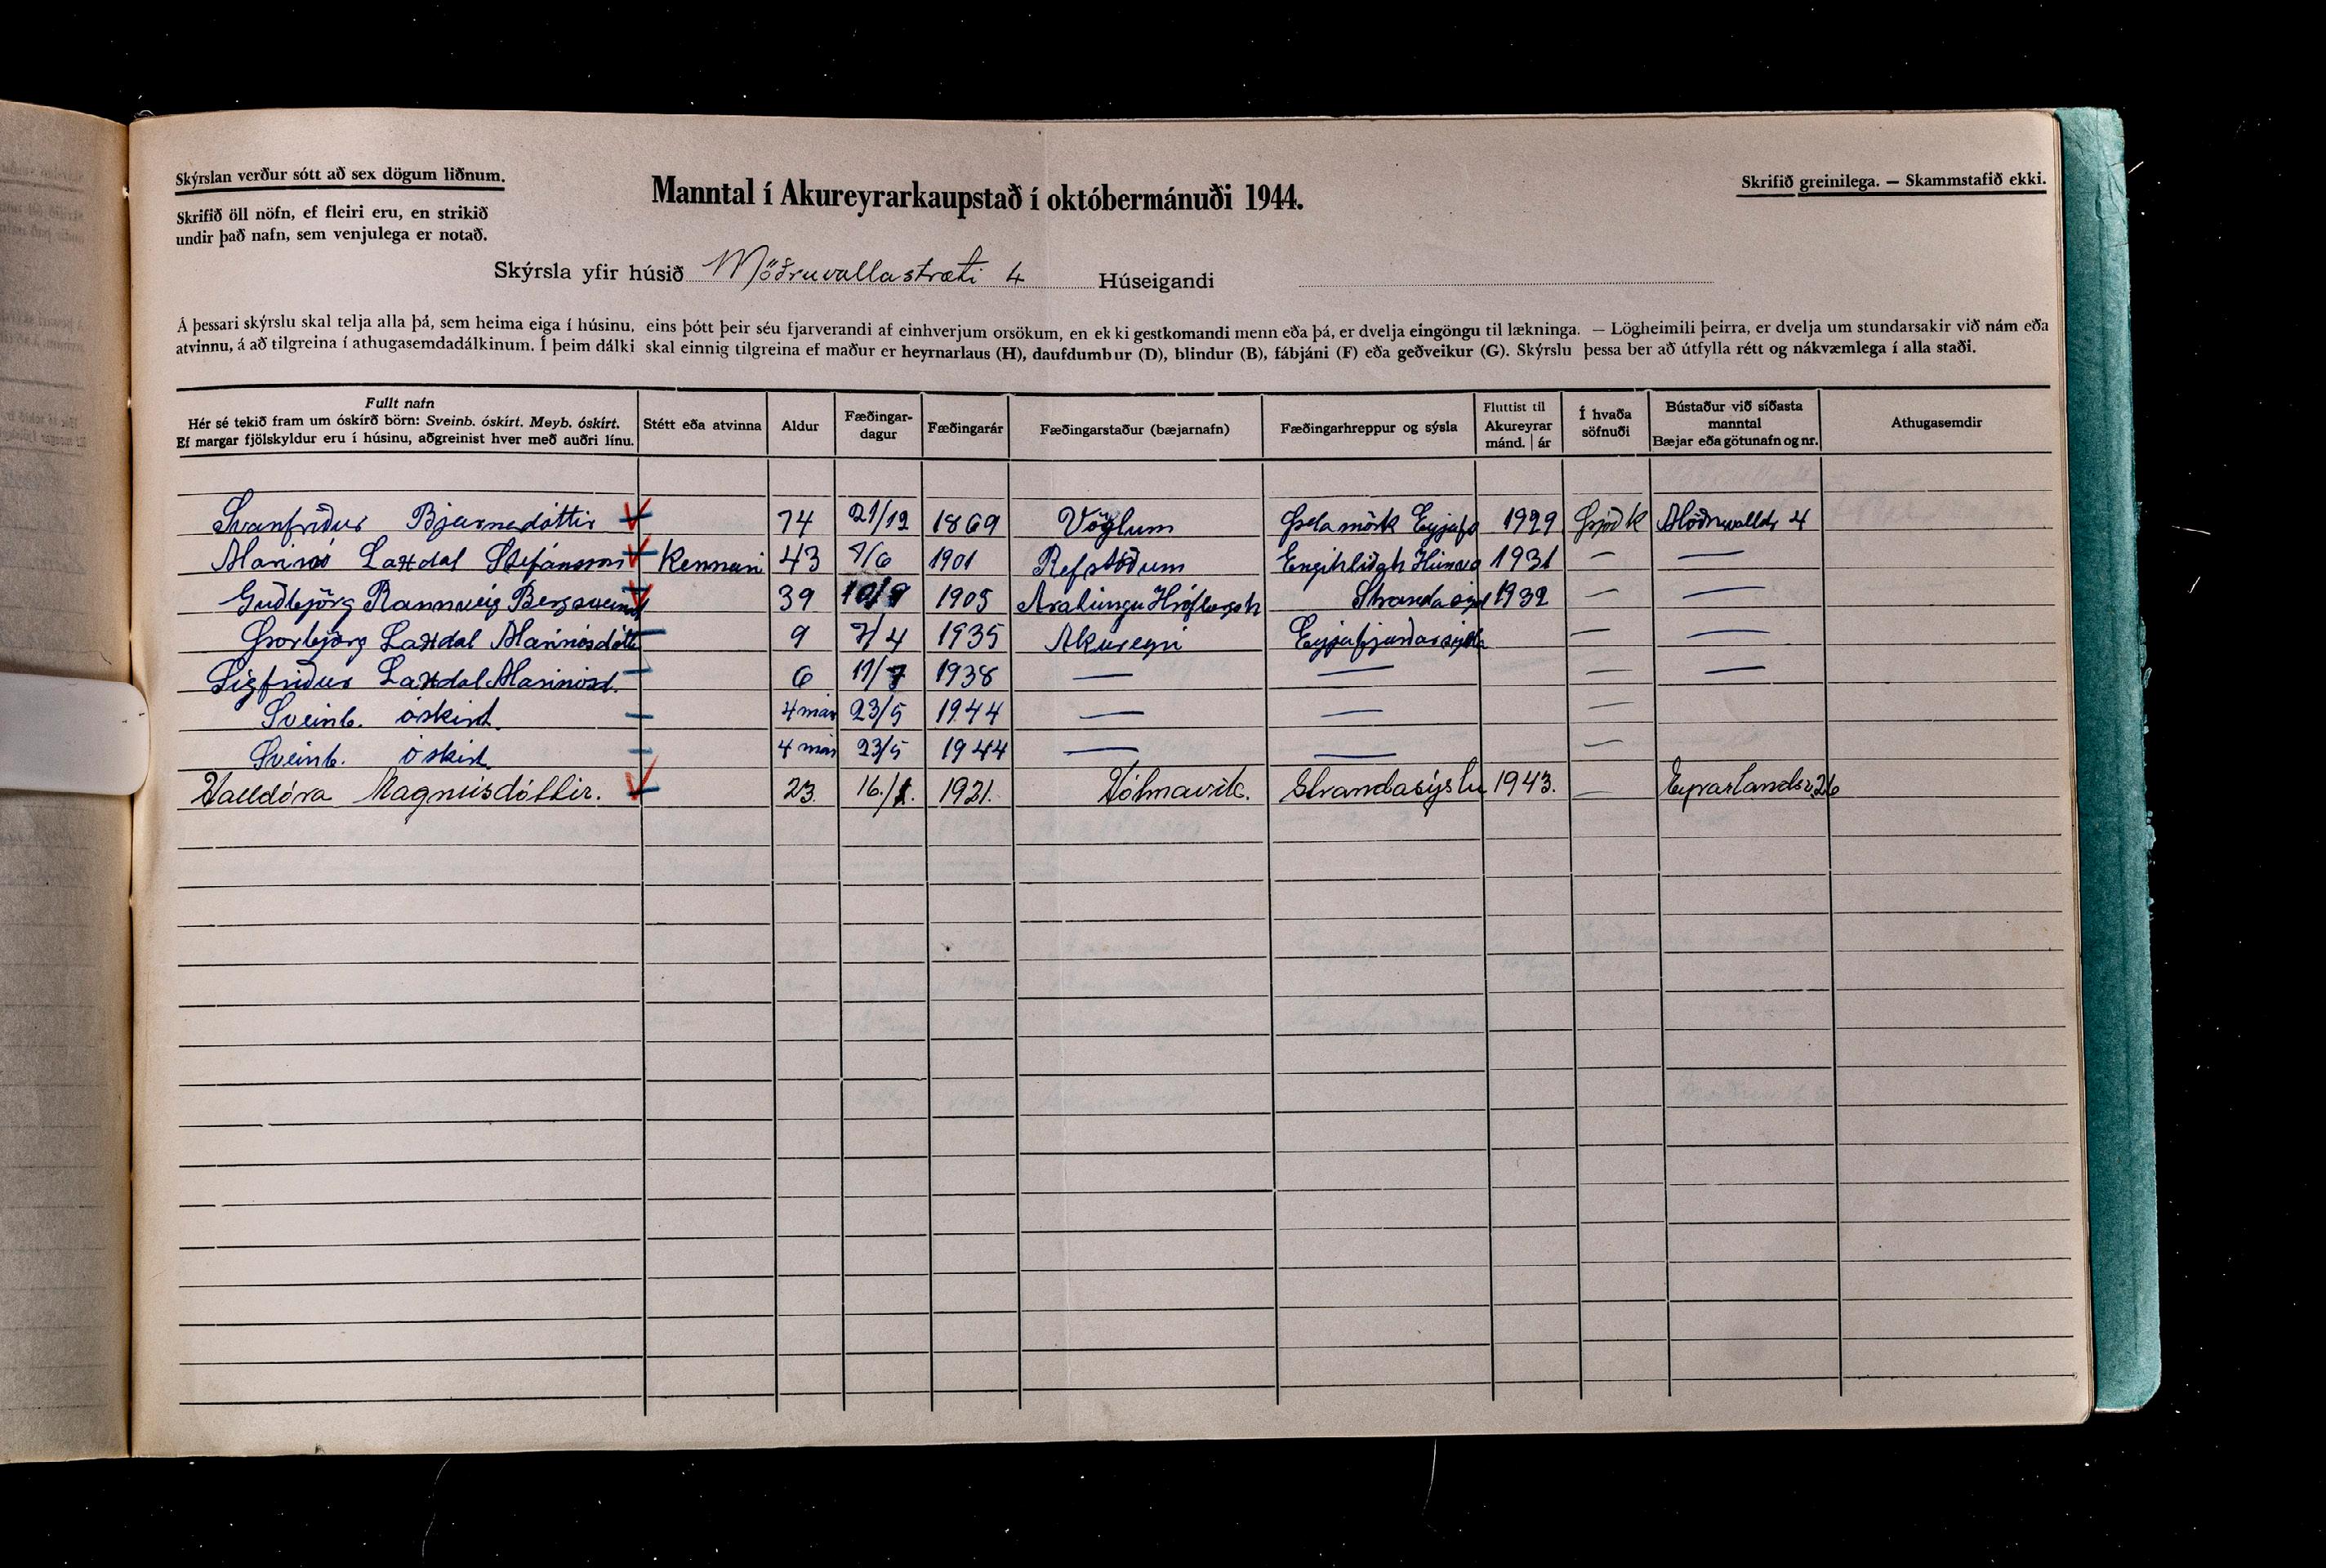 Skýrslan verður sótt að sex dögum liðnum.
Skrifið öll nöfn, ef fleiri eru, en strikið
undir það nafn, sem venjulega er notað.
Manntal í Akureyrarkaupstað í októbermánuði 1944.
Skrifið greinilega. — Skammstafið ekki.
Skýrsla yfir húsið Möðruvallastræti 4 Húseigandi
Á þessari skýrslu skal telja alla þá, sem heima eiga í húsinu, eins þótt þeir séu fjarverandi af einhverjum orsökum, en ekki gestkomandi menn eða þá, er dvelja eingöngu til lækninga. — Lögheimili þeirra, er dvelja um stundarsakir við nám eða
atvinnu, á að tilgreina í athugasemdadálkinum. Í þeim dálki skal einnig tilgreina ef maður er heyrnarlaus (H), daufdumbur (D), blindur (B), fábjáni (F) eða geðveikur (G). Skýrslu þessa ber að útfylla rétt og nákvæmlega í alla staði.
Fullt nafn
Hér sé tekið fram um óskírð börn: Sveinb. óskírt. Meyb. óskírt.
Ef margar fjölskyldur eru í húsinu, aðgreinist hver með auðri línu.
Stétt eða atvinna
Aldur
Fæðingar-
dagur
Fæðingarár
Fæðingarstaður (bæjarnafn)
Fæðingarhreppur og sýsla
Fluttist til
Akureyrar
mánd. | ár
Í hvaða
söfnuði
Bústaður við síðasta
manntal
Bæjar eða götunafn og nr.
Athugasemdir
Svanfríður Bjarnadóttir 74 21/12 1869 Vöglum Þelamörk Eyjafj 1929 Þjóðk Möðruvallstr 4
Marinó Laxdal Stefánsson Kennari 43 7/6 1901 Refstöðum Engihlíðarh Húnav 1931 — —
Guðbjörg Rannveig Bergsveinsd 39 10/9 1905 Aratungu Hrófbergsh Strandasýsl 1932 — —
Þorbjörg Laxdal Marinósdótti 9 7/4 1935 Akureyri Eyjafjarðarsýsla — —
Sigfríður Laxdal Marinósd. 6 17/7 1938 — — — —
Sveinb. óskírt. 4 mán 23/5 1944 — — —
Sveinb. óskírt. 4 mán 23/5 1944 — — —
Halldóra Magnúsdóttir. 23. 16./1. 1921. Hólmavík. Strandasýslu 1943. — Eyrarlandsv. 26